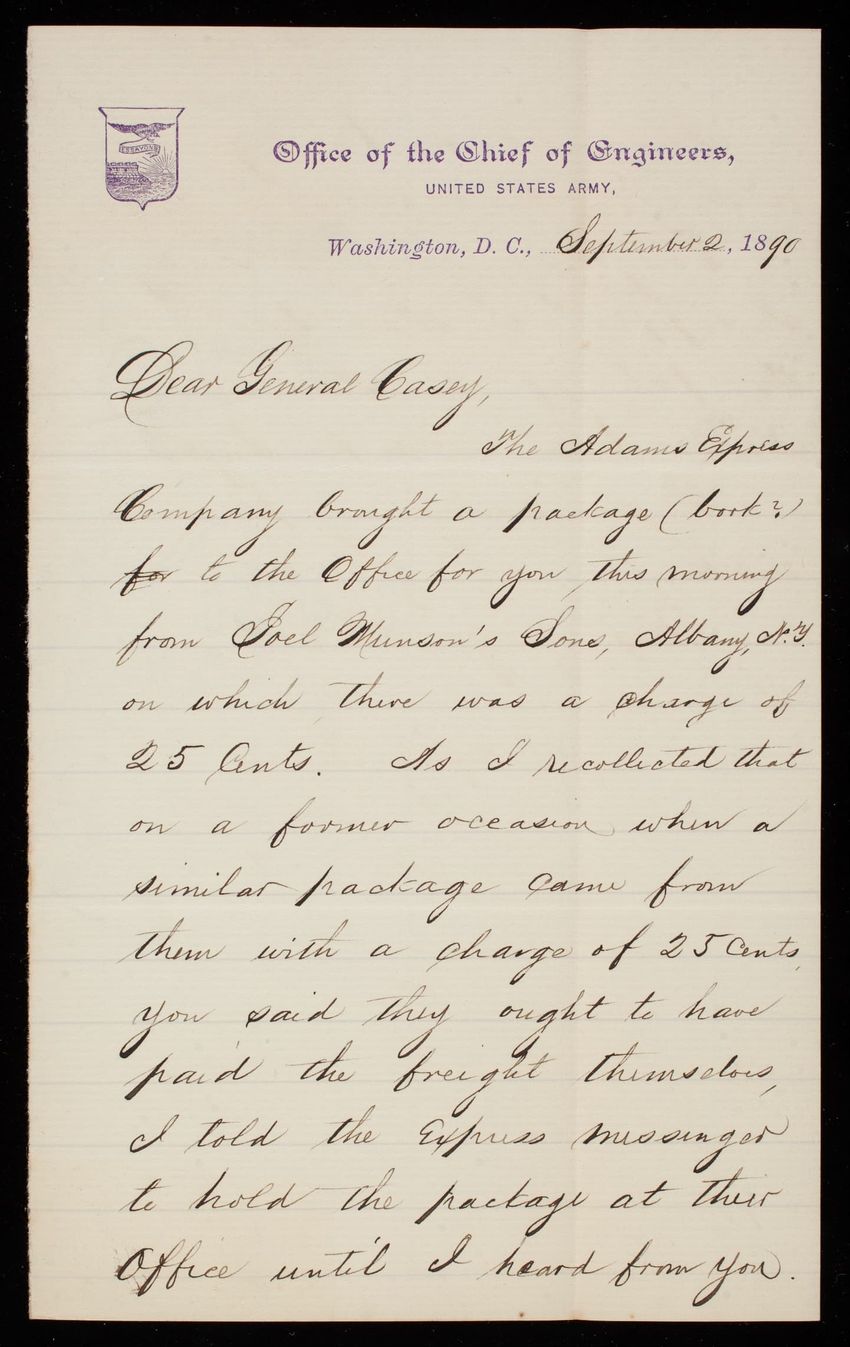 ESSAYONS
Office of the Chief of Engineers,
UNITED STATES ARMY,
Washington, D. C., September 2, 1890
Dear General Casey,
The Adams Express
Company brought a package (book?)
for to the Office for you this morning
from Joel Munson's Sons, Albany, N.Y.
on which there was a charge of
25 Cents. As I recollected that
on a former occasion when a
similar package came from
them with a charge of 25 Cents,
you said they ought to have
paid the freight themselves,
I told the Express messenger
to hold the package at their
Office until I heard from you.